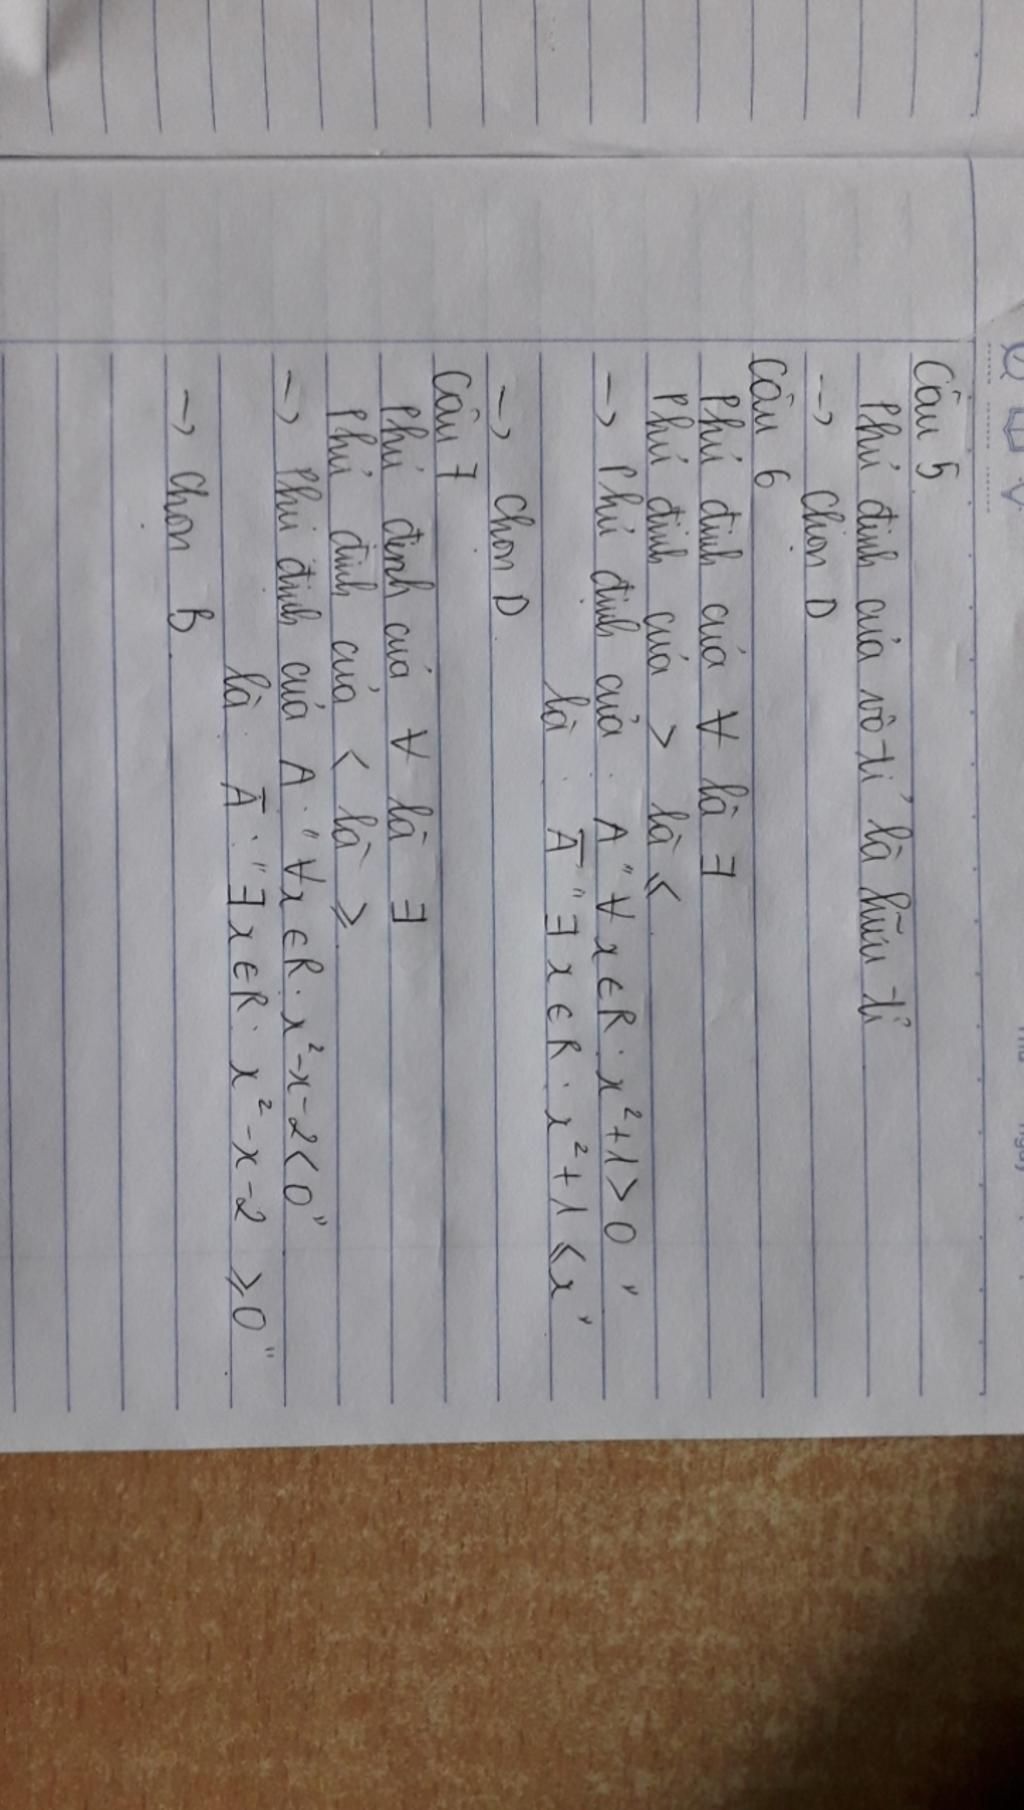 Câu 5
Phủ định của vô tỉ là hữu tỉ
→ Chọn D
Câu 6
Phủ định của ∀ là ∃
Phủ định của > là ⩽
→ Phủ định của : A "∀ x ∈ R : x² + 1 > 0"
là : A̅ "∃ x ∈ R : x² + 1 ⩽ x"
→ Chọn D
Câu 7
Phủ định của ∀ là ∃
Phủ định của < là ⩾
→ Phủ định của A : "∀x ∈ R : x² - x - 2 < 0"
là : A̅ : "∃ x ∈ R : x² - x - 2 ⩾ 0"
→ Chọn B